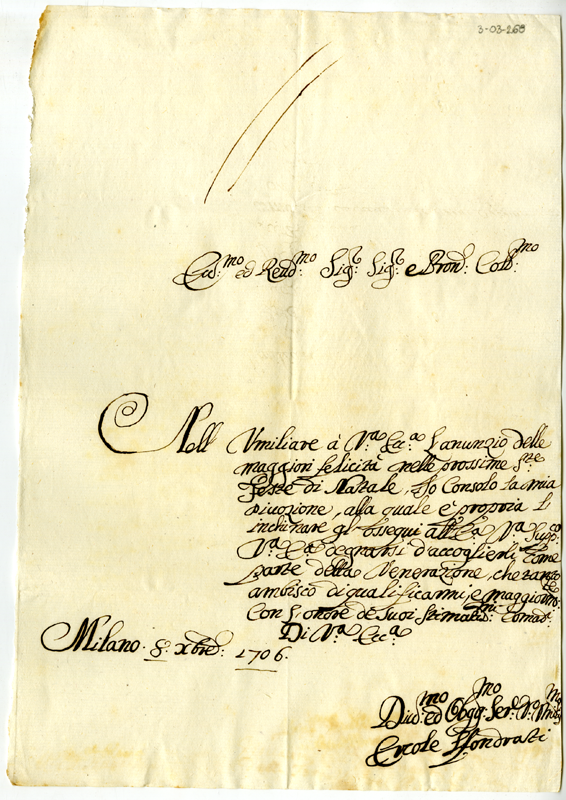 3-03-268
Ecc.mo ed Reud.mo Sig.r Sig.r e Pron. Coll.mo
Nell Vmiliare à V.a Ecc.a L'anunzio delle
maggiori felicità nelle prossime S.te
Feste di Natale, Io Consolo la mia
divozione, alla quale è propria l'
inchinare gl'ossequi all'E.a V.a Supp.co
V.a E.a degnarsi d'accoglierli Come
parte della Venerazione, che tanto
ambisco di qualificarmi, e maggiorm.te
Con L'onore de Suoi Stimatis.mi Comad.i
Di V.a Ecc.a
Milano. 8. Xbre. 1706.
Diu.mo ed Obg.mo Ser.
Ercole Sfondrati